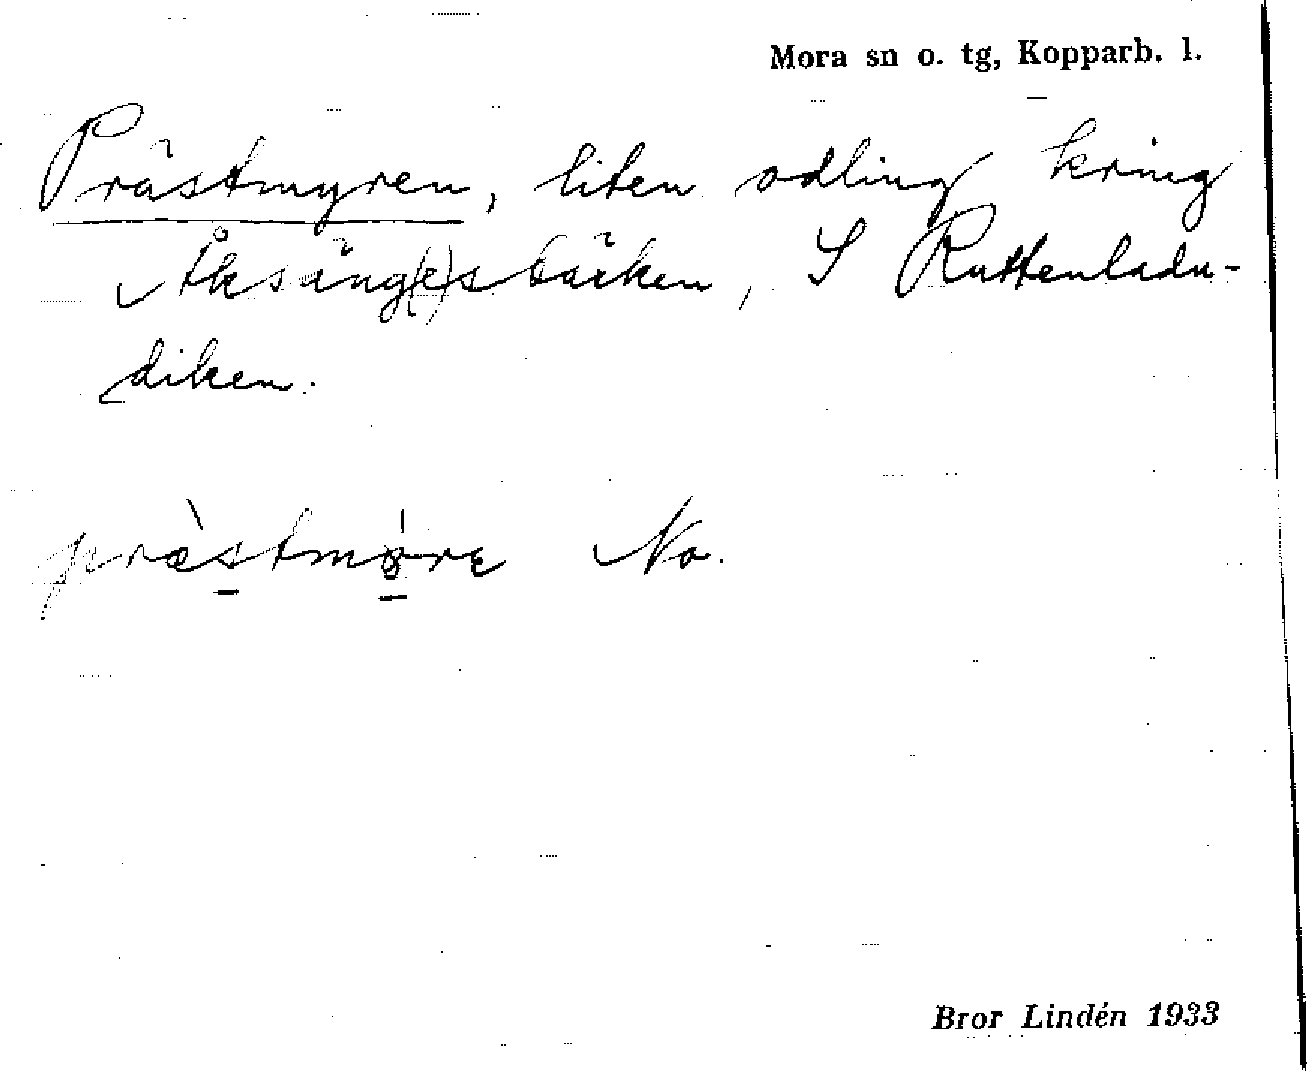 Mora sn o. tg, Kopparb. l.
Prästmyren, liten odling kring
Åksäng(e)sbäcken, S Ruttenladu-
diken.
præstmøre No.
Bror Lindén 1933